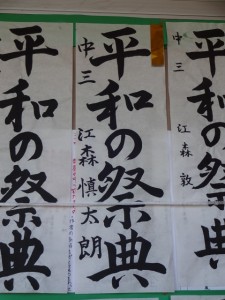 平和の祭典
中三
江森敦
平和の祭典
中三
江森慎太朗
平和の祭典